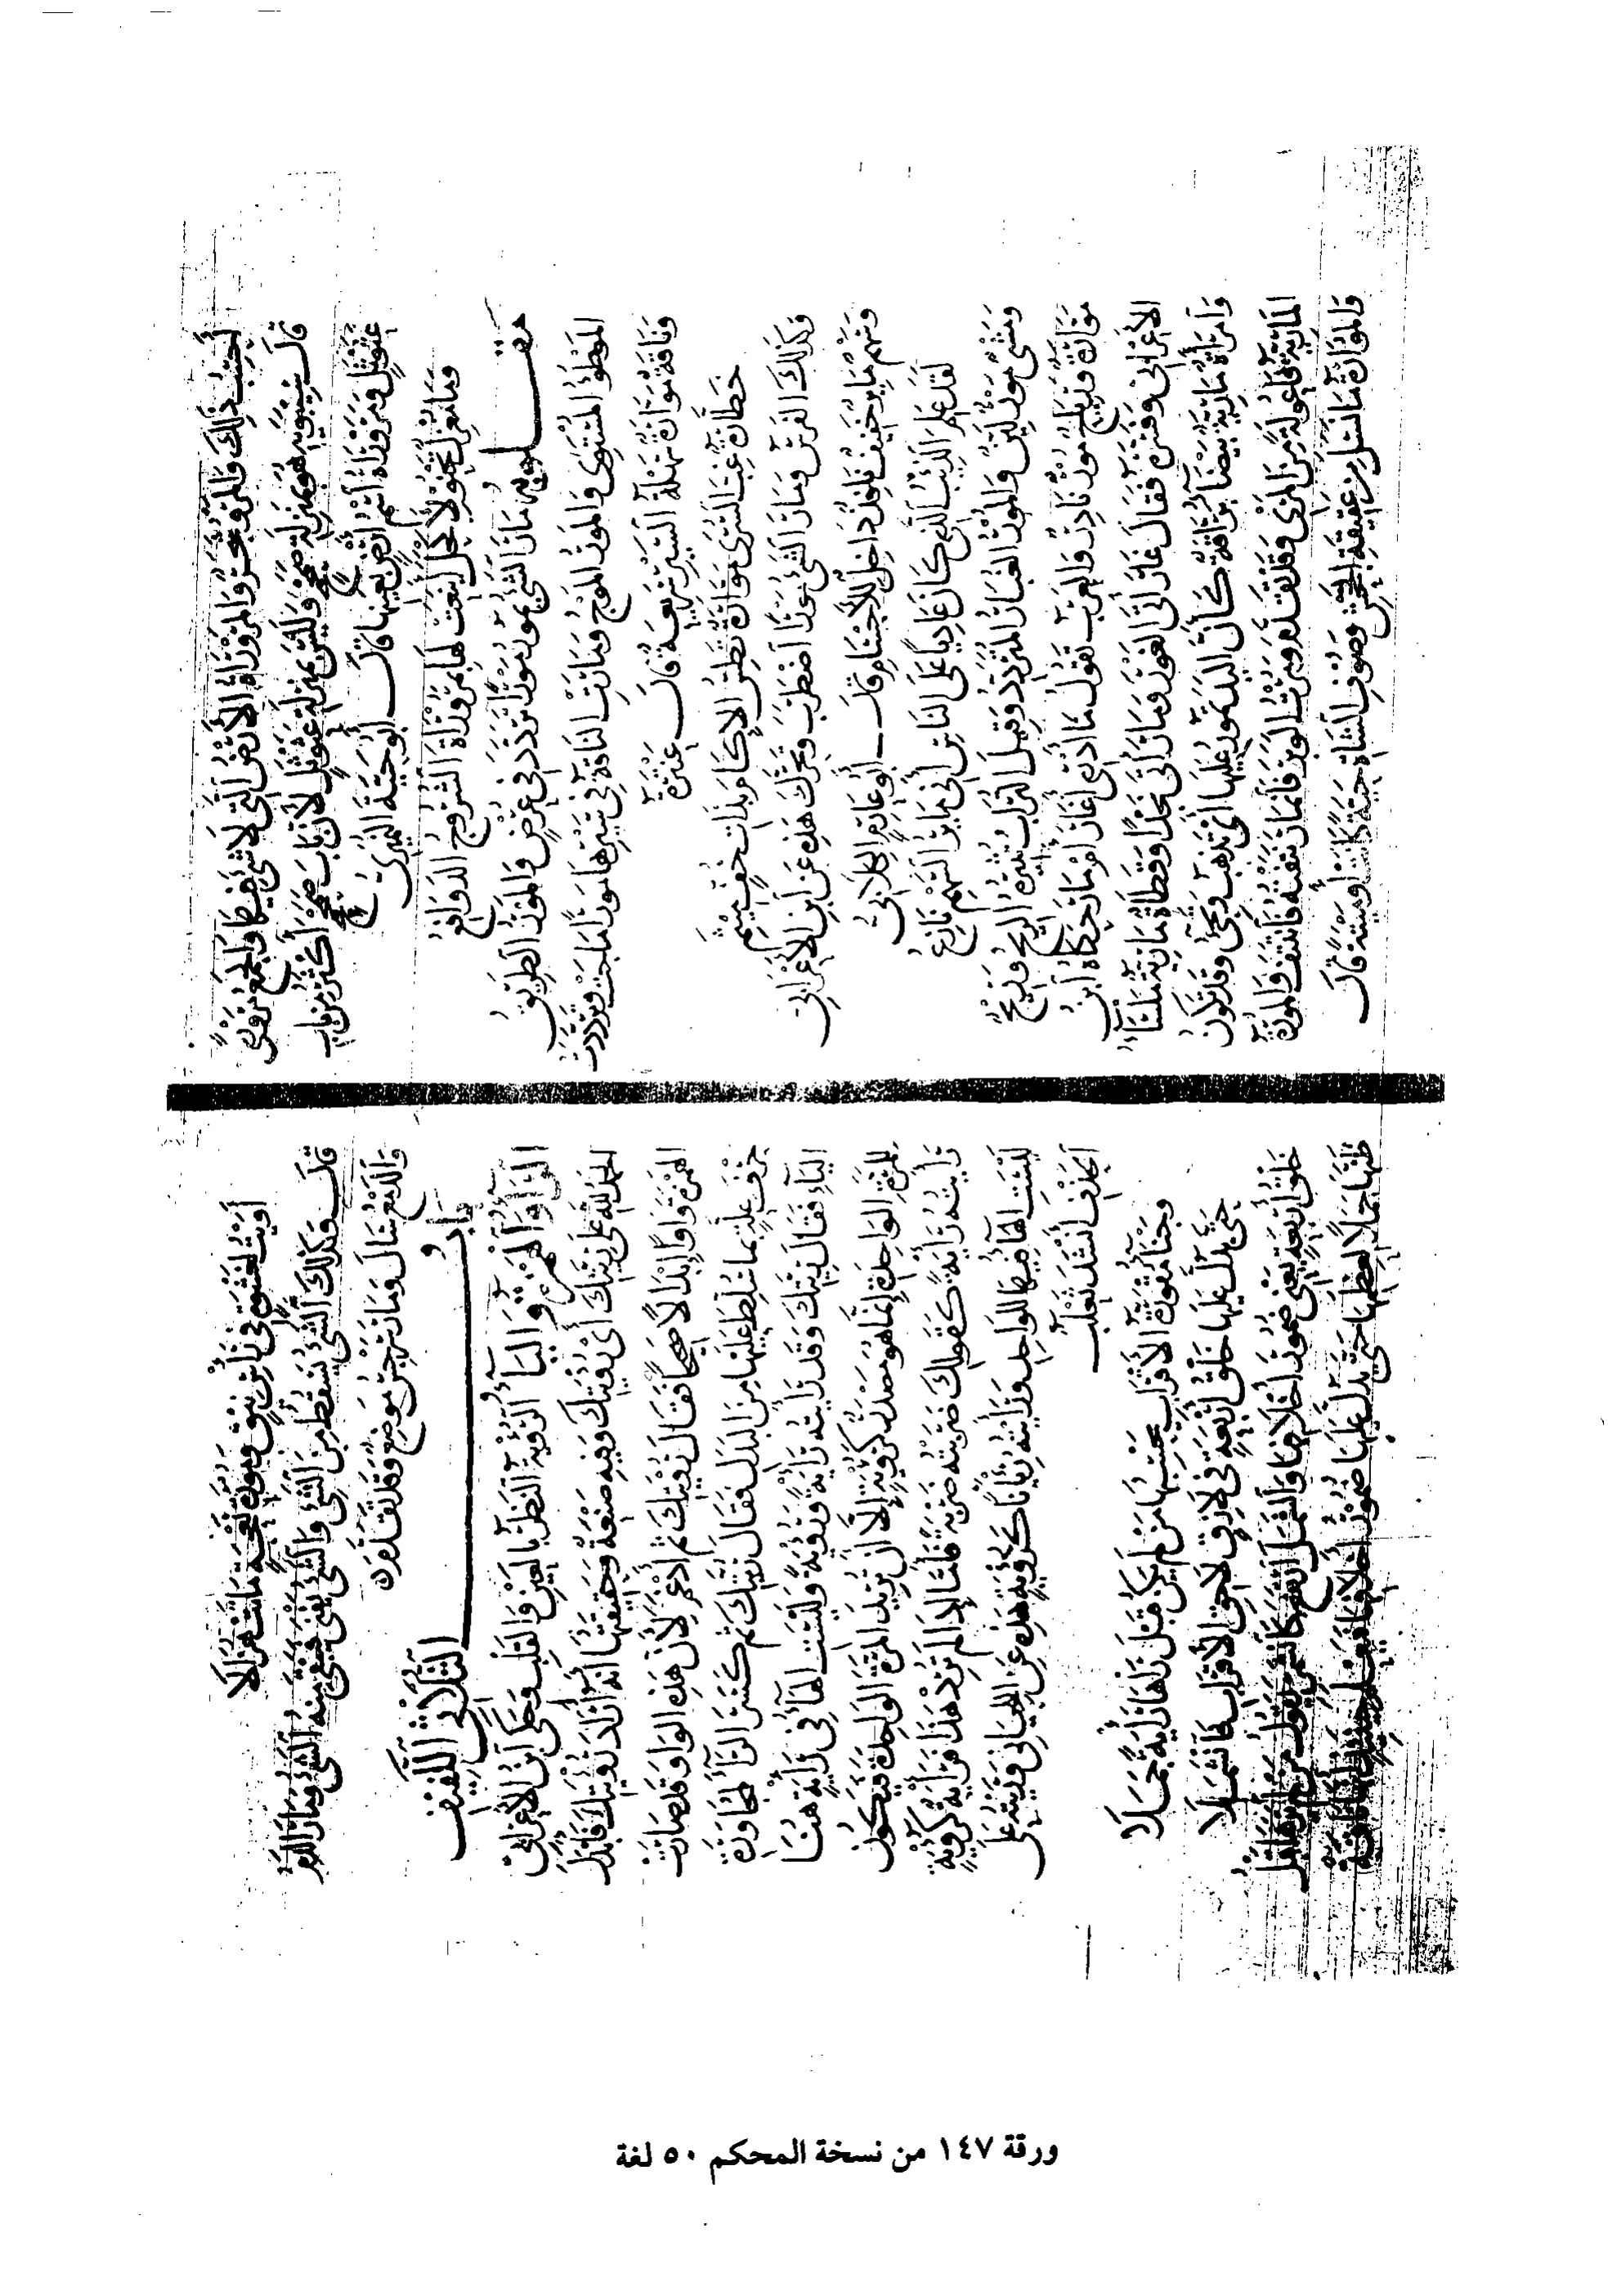 أحتسب ذلك قال المرو بحر والمروراة الأرض التي لا شئ فيها والجمع مرورى
قال سيبويه هو بمنزلة صمحمح وليس بمنزلة عثوثل لأن باب صمحمح أكثر من باب
عثوثل ومروراة اسم أرض بعينها قال أبو حية النميري
وما مغزل تحنو لأكحل أينعت لها بمروراة الشروج الدوافع
مقلوبه مار الشئ يمور مورا تردد في عرض والمور الطريق
الموطوء المستوى والمور الموج ومارت الناقة في سيرها مورا ماجت وترددت
وناقة موارة سهلة السير سريعة قال عنترة
خطارة غب السرى موارة تطس الإكام بذات خف ميثم
وكذلك الفرس ومار الشئ مورا اضطرب وتحرك هذه عن ابن الأعرابي
وسهم مائر خفيف نافذ داخل للأجسام قال أبو عامر الكلابي
لقد علم الذئب الذي كان عاديا على الناس أني مائر السهم نازع
ومشى مور لين والمور الغبار المتردد وقيل التراب تثيره الريح وريح
موارة وأرياح مور نادرة والعرب تقول ما أدري أغار أم مار حكاه ابن
الأعرابي وفسره فقال غار أتى الغور ومار أتى نجدا وقطاة مارية ملساء
وامرأة مارية بيضاء براقة كأن اليد تمور عليها أي تذهب وتجئ وقد تكون
المارية فاعولة من المري وقد تقدم ومرت الوبر فانمار نتفته فانتتف والموارة
والموارة ما نسل من عقيقة الجحش وصوف الشاة حية كانت أو ميتة قال
أويت لعشوة في رأس نيق ومورة نعجة ماتت هزالا
قال وكذلك الشئ يسقط من الشئ والشئ يفنى فيبقى منه الشئ ومار الدم
والدمع سال ومار سرجس موضع وقد تقدم
باب الثلاثي اللفيف
الراء والهمزة والياء الرؤية النظر بالعين والقلب وحكى ابن الأعرابي
الحمد لله على ريتك أي رؤيتك وفيه صنعة وحقيقتها أنه أراد رؤيتك فأبدل
الهمزة واوا إبدالا صحيحا فقال رويتك ثم أدغم لأن هذه الواو قد صارت
حرف علة بما سلط عليها من البدل فقال ريتك ثم كسر الراء لمجاورة
الياء فقال ريتك وقد رأيته رأية ورؤية وليست الهاء في رأية هنا
للمرة الواحدة إنما هو مصدر كرؤية إلا أن تريد المرة الواحدة فيكون
رأيته رأية كقولك ضربته ضربة فأما إذا لم ترد هذا فرأية كرؤية
ليست الهاء فيها للواحد ورأيته رئيانا كرؤية هذه عن اللحياني وريته على
الحذف أنشد ثعلب
وجنا مقورة الأقراب يحسبها من لم يكن قبل راها رأية جملا
حتى يدل عليها خلق أربعة في لازق لاحق الأقراب فانشملا
خلق أربعة يعني ضمور أخلافها وانشمل ارتفع كانشمر يقول من لم يرها قبل
ظنها جملا لعظمها حتى يدل عليها ضمور أخلافها فيعلم حينئذ أنها ناقة
ورقة ١٤٧ من نسخة المحكم ٥٠ لغة